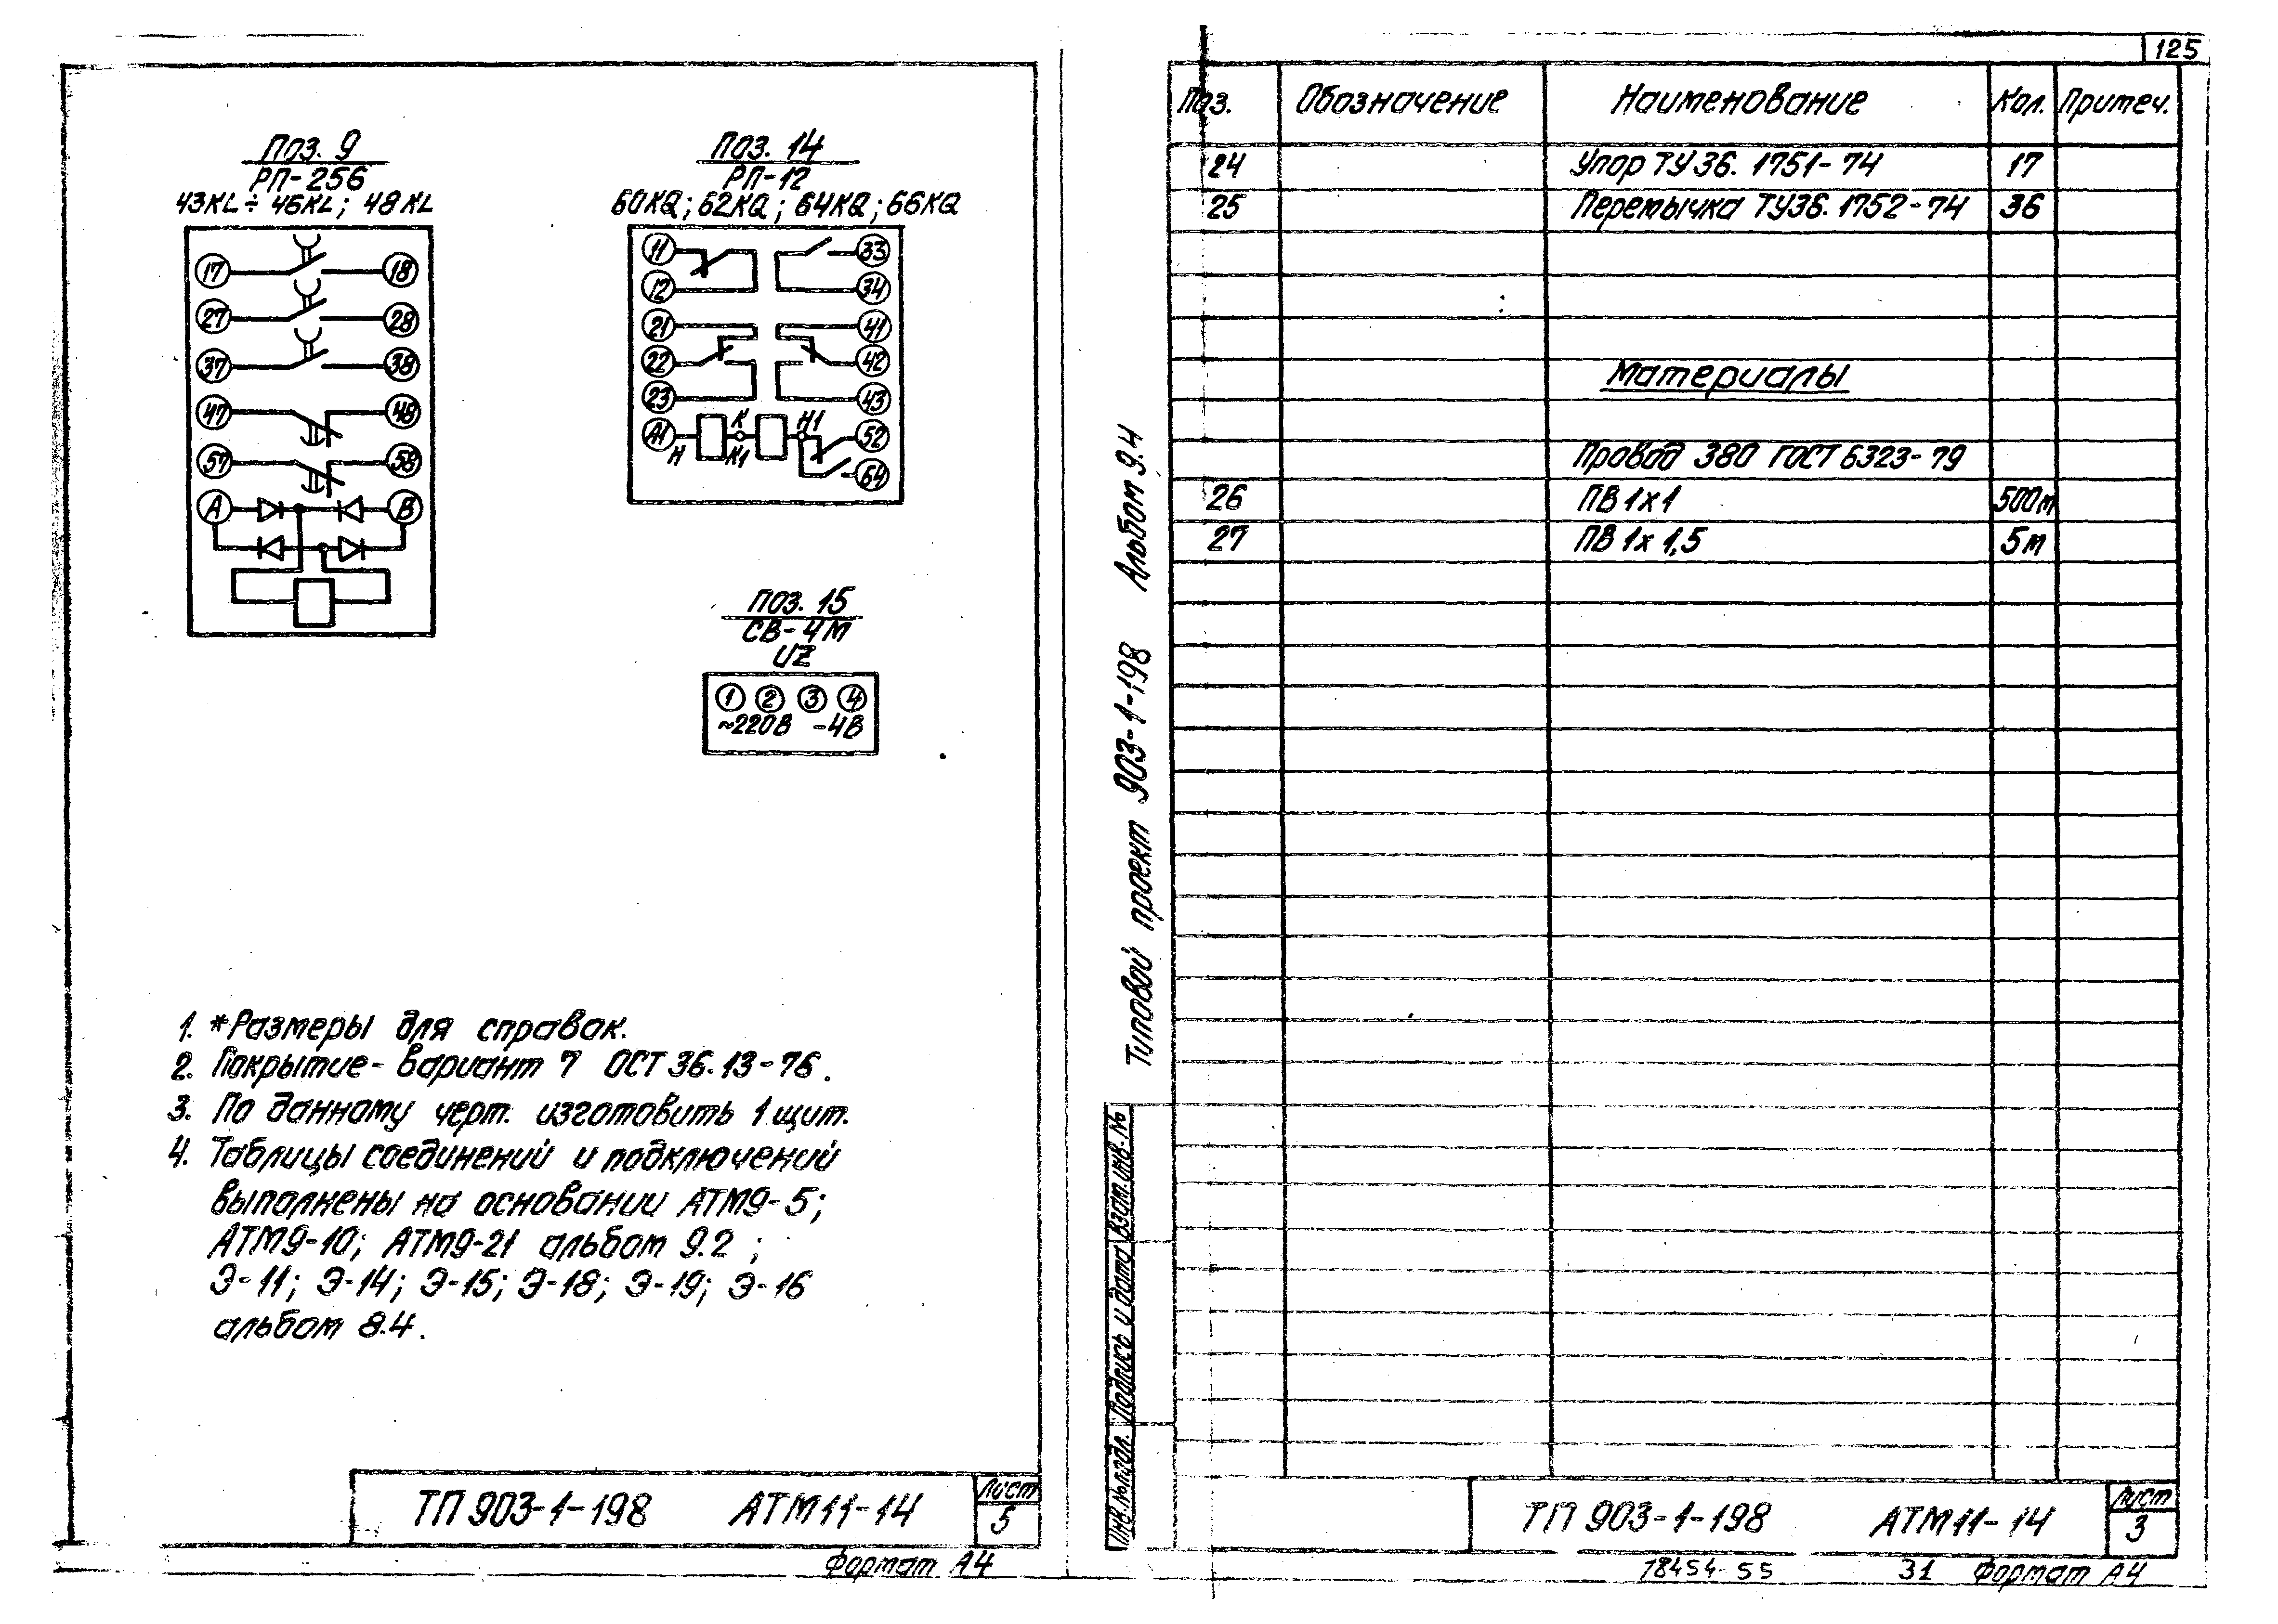 Поз. 9
РП-256
43KL ÷ 46KL; 48KL
17 18
27 28
37 38
47 48
57 58
А В
Поз. 14
РП-12
60KQ; 62KQ; 64KQ; 66KQ
11 33
12 34
21 41
22 42
23 43
А1 Н К К1 Н1 52
64
Поз. 15
СВ-4М
UZ
1 2 3 4
~220В -4В
1. *Размеры для справок.
2. Покрытие - вариант 7 ОСТ 36.13-76.
3. По данному черт. изготовить 1 щит.
4. Таблицы соединений и подключений
выполнены на основании АТМ9-5;
АТМ9-10; АТМ9-21 альбом 9.2;
Э-11; Э-14; Э-15; Э-18; Э-19; Э-16
альбом 8.4.
ТП 903-1-198 АТМ11-14
Лист
5
Формат А4
125
Поз. Обозначение Наименование Кол. Примеч.
24 Упор ТУ 36. 1751-74 17
25 Перемычка ТУ36. 1752-74 36
Материалы
Провод 380 ГОСТ 6323-79
26 ПВ 1х1 500м
27 ПВ 1х 1,5 5м
Типовой проект 903-1-198 Альбом 9.4
Инв.№подл. Подпись и дата Взам.инв.№
ТП 903-1-198 АТМ11-14
Лист
3
18454-55 31 Формат А4